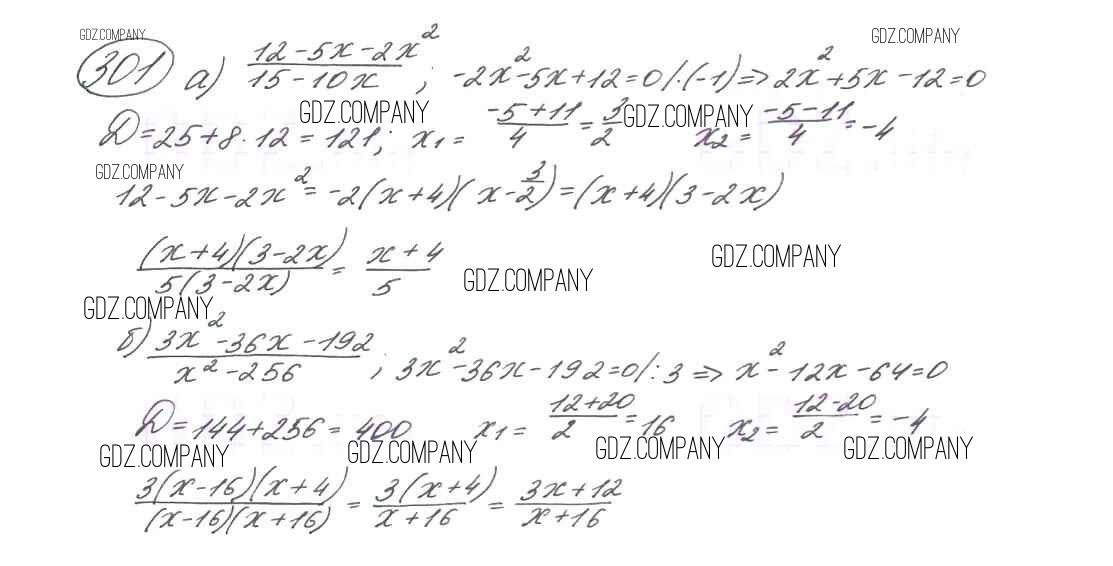 GDZ.COMPANY GDZ.COMPANY
301 а) (12-5x-2x²)/(15-10x); -2x²-5x+12=0 /·(-1) => 2x²+5x-12=0
GDZ.COMPANY GDZ.COMPANY
D=25+8·12=121; x₁=(-5+11)/4=3/2 x₂=(-5-11)/4=-4
GDZ.COMPANY
12-5x-2x²=-2(x+4)(x-3/2)=(x+4)(3-2x)
(x+4)(3-2x)/5(3-2x)=(x+4)/5
GDZ.COMPANY GDZ.COMPANY
GDZ.COMPANY
б) (3x²-36x-192)/(x²-256); 3x²-36x-192=0 /:3 => x²-12x-64=0
D=144+256=400 x₁=(12+20)/2=16 x₂=(12-20)/2=-4
GDZ.COMPANY GDZ.COMPANY GDZ.COMPANY GDZ.COMPANY
3(x-16)(x+4)/(x-16)(x+16)=3(x+4)/(x+16)=(3x+12)/(x+16)